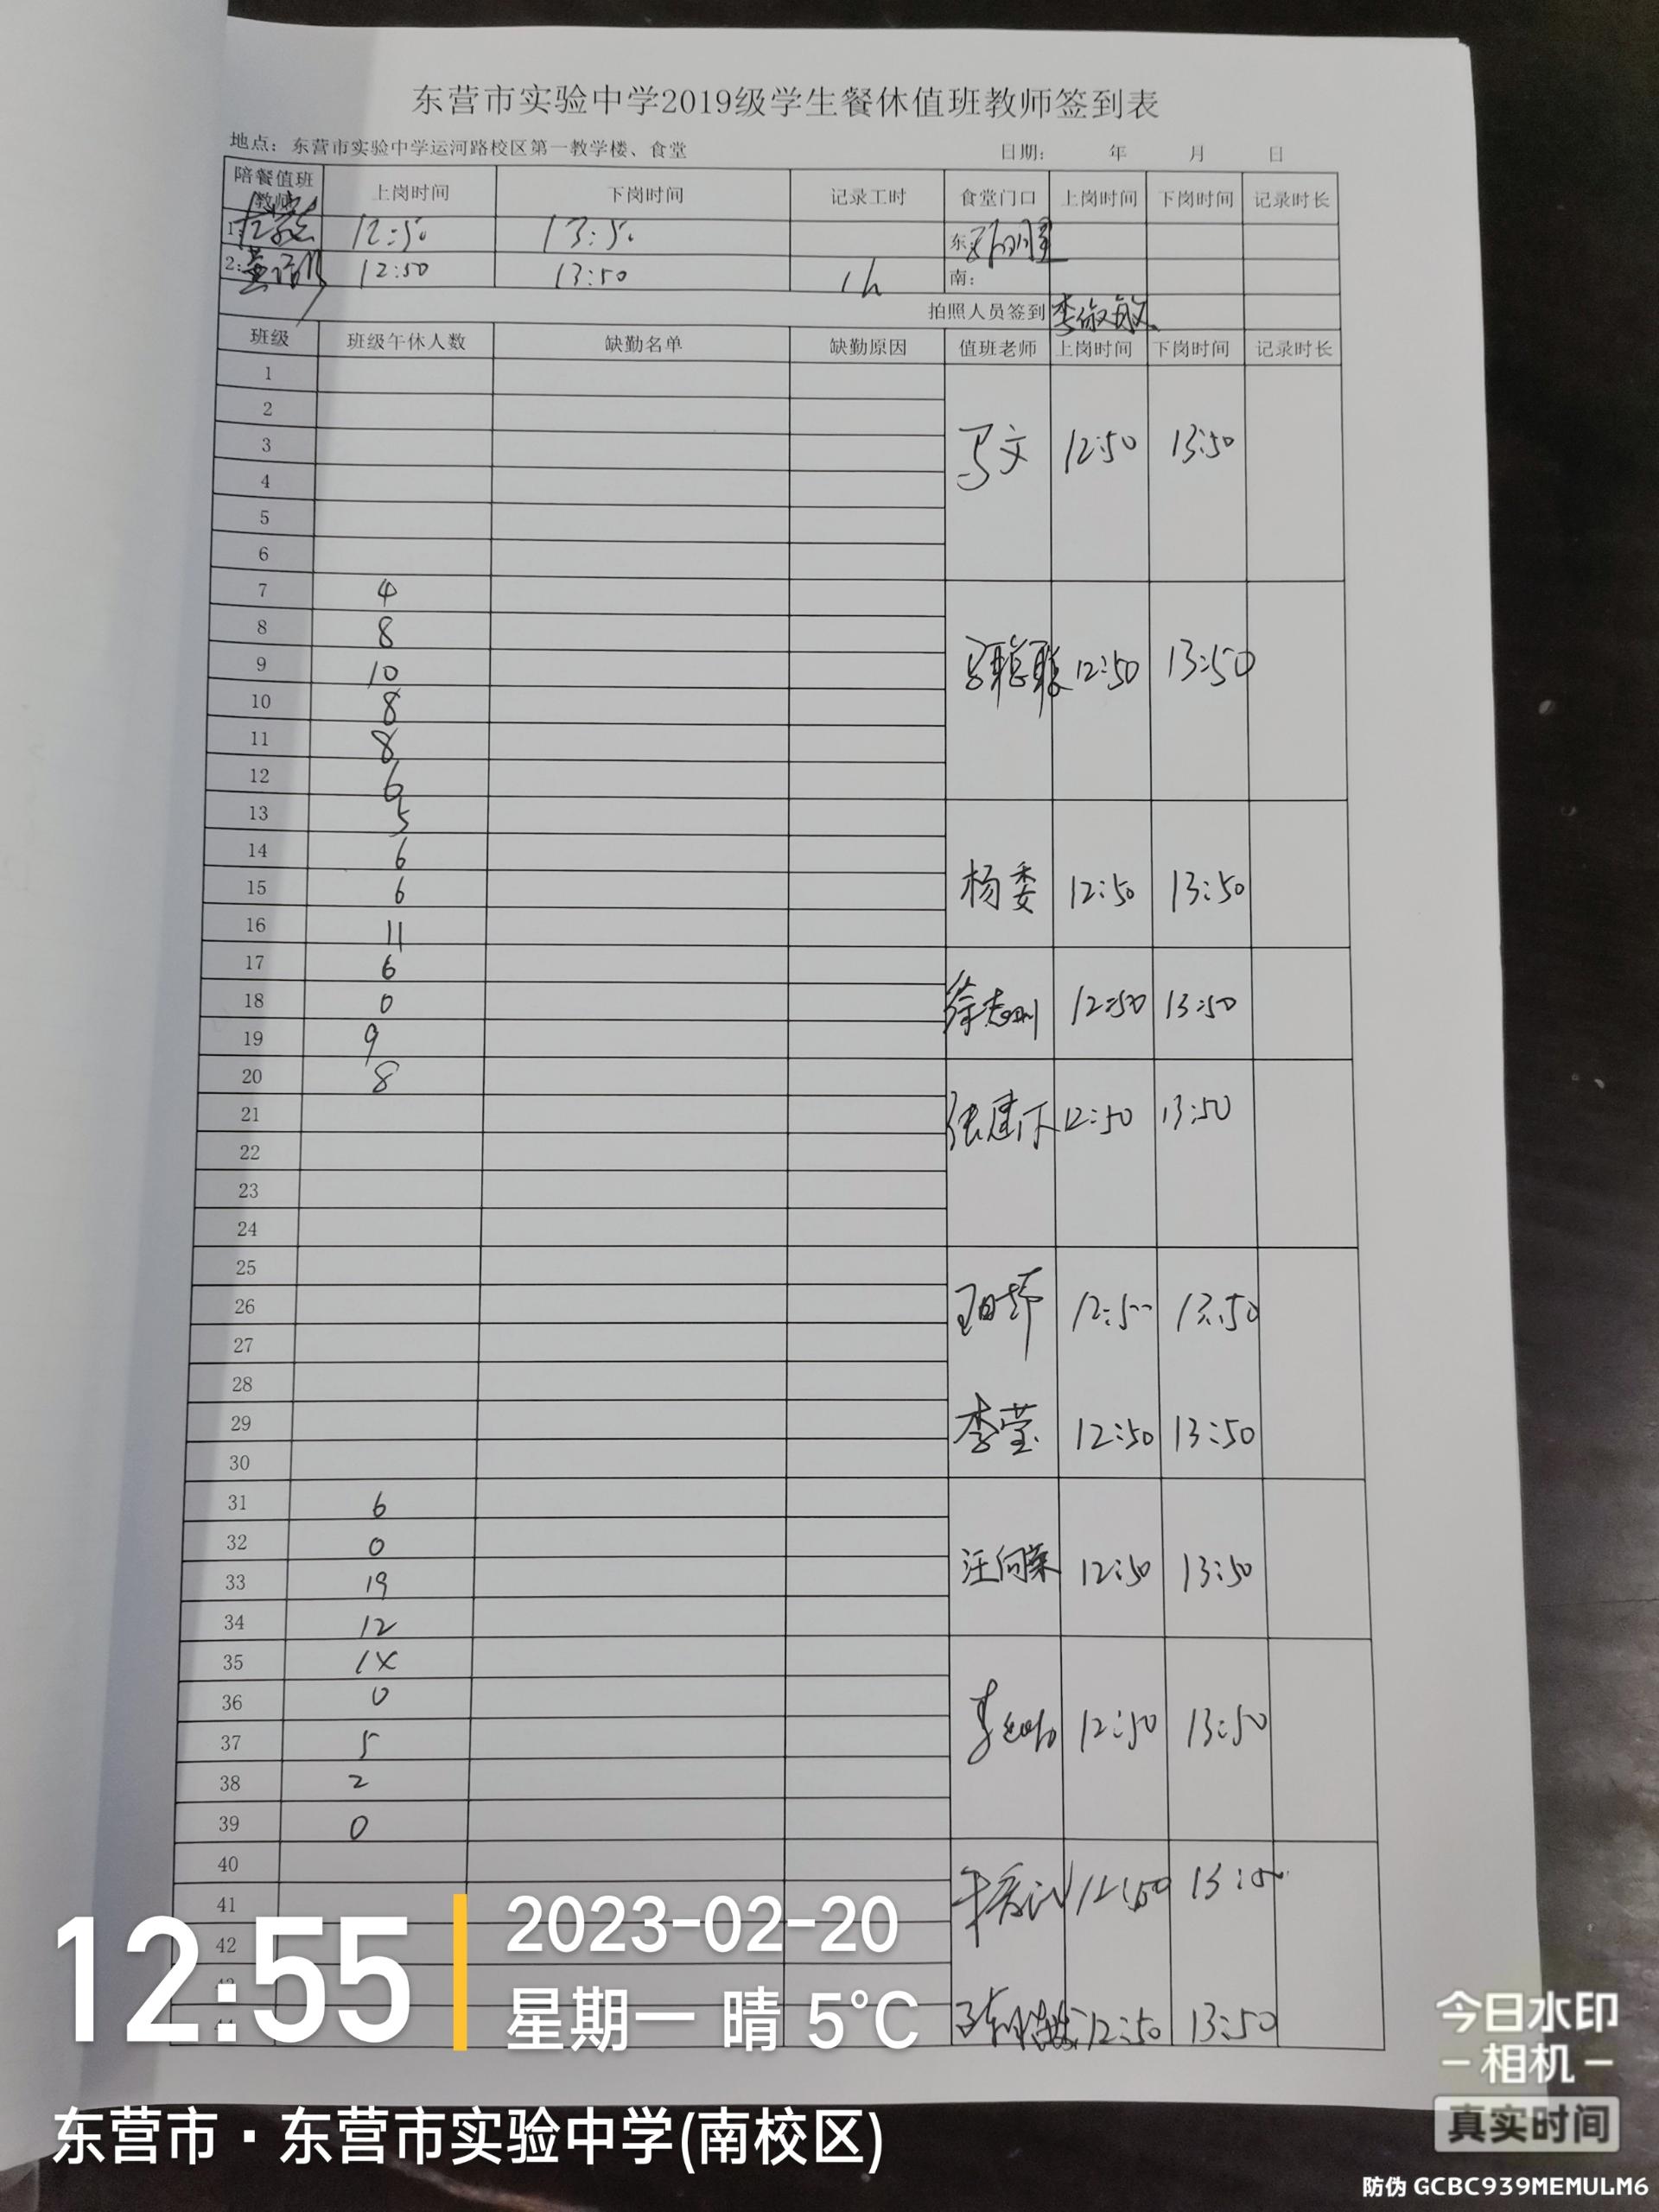 东营市实验中学2019级学生餐休值班教师签到表
地点：东营市实验中学运河路校区第一教学楼、食堂 日期： 年 月 日
陪餐值班教师 上岗时间 下岗时间 记录工时 食堂门口 上岗时间 下岗时间 记录时长
1: 12:50 13:50 东:
2: 12:50 13:50 1h 南:
拍照人员签到 李俊敏
班级 班级午休人数 缺勤名单 缺勤原因 值班老师 上岗时间 下岗时间 记录时长
1
2
3 马文 12:50 13:50
4
5
6
7 4
8 8
9 10 聪聪 12:50 13:50
10 8
11 8
12 6
13 5
14 6
15 6 杨委 12:50 13:50
16 11
17 6
18 0 徐志刚 12:50 13:50
19 9
20 8
21 张建 12:50 13:50
22
23
24
25
26 12:50 13:50
27
28
29 李莹 12:50 13:50
30
31 6
32 0
33 19 汪向荣 12:50 13:50
34 12
35 1X
36 0
37 5 12:50 13:50
38 2
39 0
40
41 12:50 13:50
42
12:50 13:50
12:55
2023-02-20
星期一 晴 5°C
东营市·东营市实验中学(南校区)
今日水印
相机
真实时间
防伪 GCBC939MEMULM6